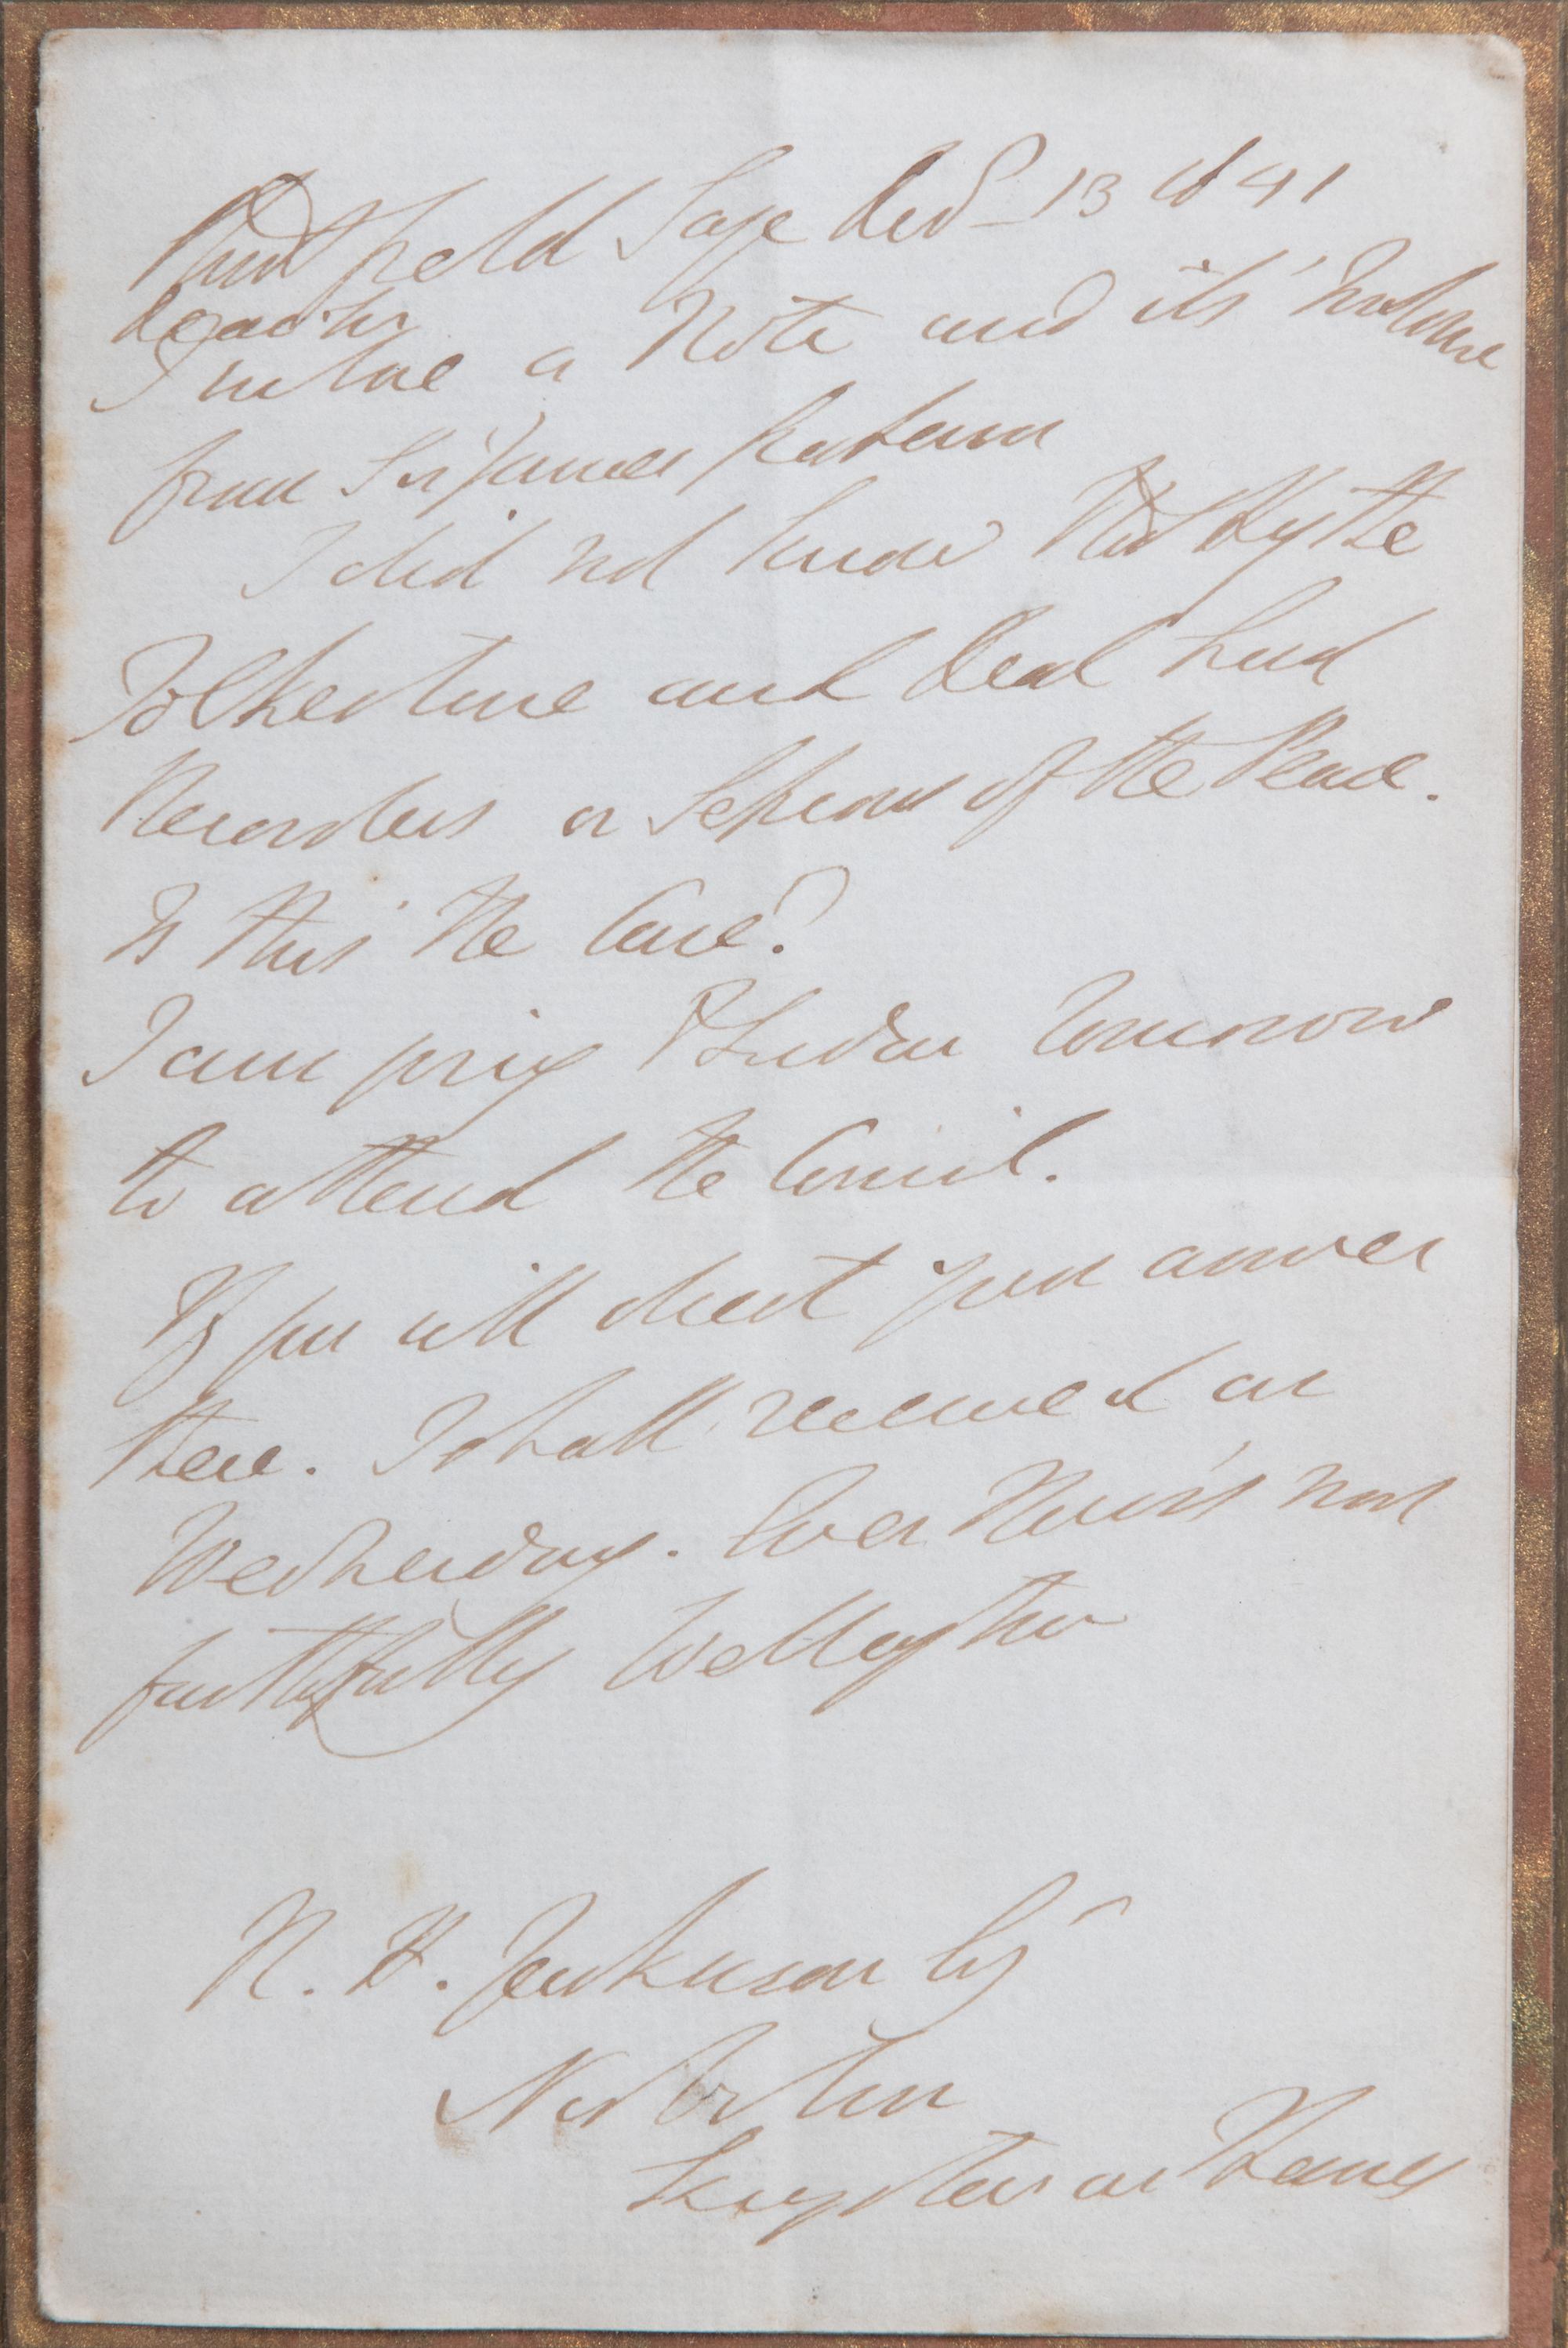 Strathfield Saye Decr 13 1841
Dear Sir
I enclose a Note and its' Inclosure
from Sir James Graham
I did not know that Hythe
Folkestone and Deal had
Recorders or Sessions of the Peace.
Is this the Case?
I am going to London tomorrow
to attend the Council.
If you will direct your answer
there. I shall receive it on
Wednesday. Ever Yours most
faithfully Wellington
R. H. Jenkinson Esq
Norbiton
Kingston on Thames